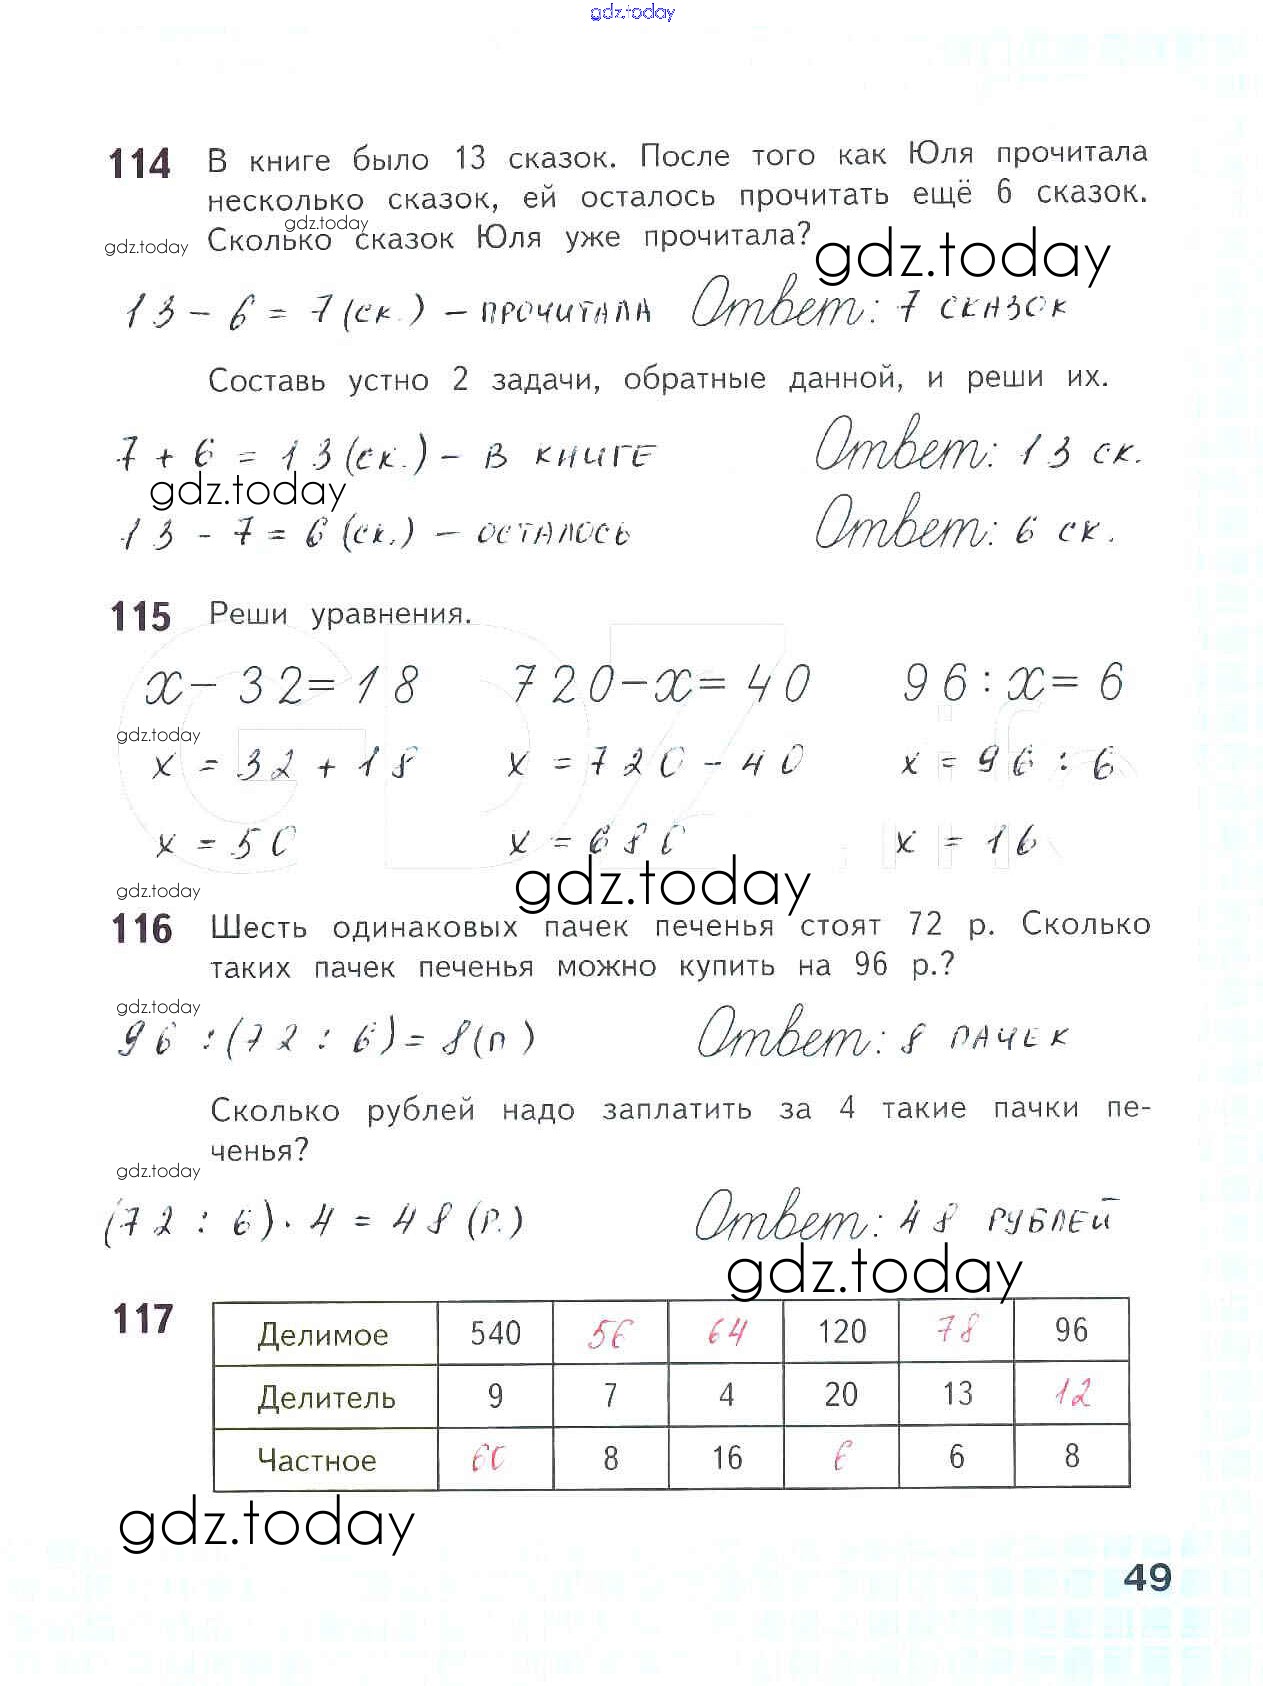 gdz.today
114 В книге было 13 сказок. После того как Юля прочитала
несколько сказок, ей осталось прочитать ещё 6 сказок.
gdz.today
gdz.today Сколько сказок Юля уже прочитала?
gdz.today
13 - 6 = 7 (ск.) - ПРОЧИТАЛА Ответ: 7 СКАЗОК
Составь устно 2 задачи, обратные данной, и реши их.
7 + 6 = 13 (ск.) - В КНИГЕ Ответ: 13 ск.
gdz.today
13 - 7 = 6 (ск.) - ОСТАЛОСЬ Ответ: 6 ск.
115 Реши уравнения.
x - 32 = 18 720 - x = 40 96 : x = 6
gdz.today
x = 32 + 18 x = 720 - 40 x = 96 : 6
x = 50 x = 680 x = 16
gdz.today
gdz.today
116 Шесть одинаковых пачек печенья стоят 72 р. Сколько
таких пачек печенья можно купить на 96 р.?
gdz.today
96 : (72 : 6) = 8 (п) Ответ: 8 ПАЧЕК
Сколько рублей надо заплатить за 4 такие пачки пе-
ченья?
gdz.today
(72 : 6) · 4 = 48 (Р.) Ответ: 48 РУБЛЕЙ
gdz.today
117 Делимое 540 56 64 120 78 96
Делитель 9 7 4 20 13 12
Частное 60 8 16 6 6 8
gdz.today
49